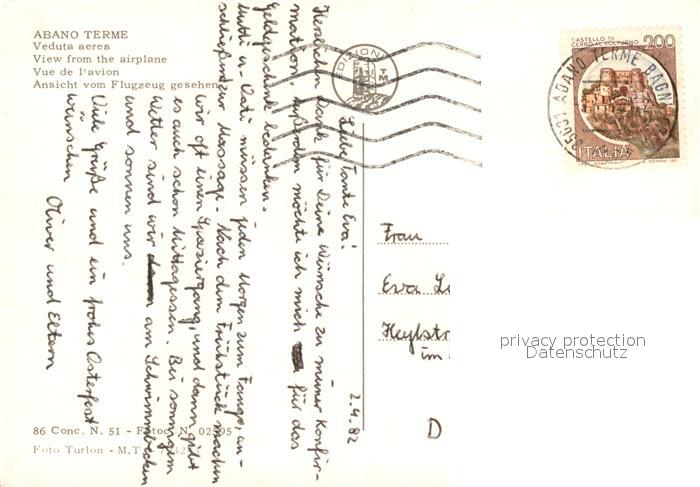 ABANO TERME
Veduta aerea
View from the airplane
Vue de l'avion
Ansicht vom Flugzeug gesehen
EDIZIONI
TM
CASTELLO DI
CERRO AL VOLTURNO
200
ITALIA
ABANO TERME BAGNI
2.4.82
Liebe Tante Eva!
Herzlichen Dank für Deine Wünsche zu meiner Konfir-
mation. Außerdem möchte ich mich für das
Geldgeschenk bedanken.
Mutti u. Vati müssen jeden Morgen zum Fango, an-
schließend zur Massage. Nach dem Frühstück machen
wir oft einen Spaziergang, und dann gibt
es auch schon Mittagessen. Bei sonnigem
Wetter sind wir am Schwimmbecken
und sonnen uns.
Viele Grüße und ein frohes Osterfest
wünschen
Oliver und Eltern
Frau
Eva
Heylstr
im
D
privacy protection
Datenschutz
86 Conc. N. 51 - Fotoc. N. 02595
Foto Turlon - M.T.